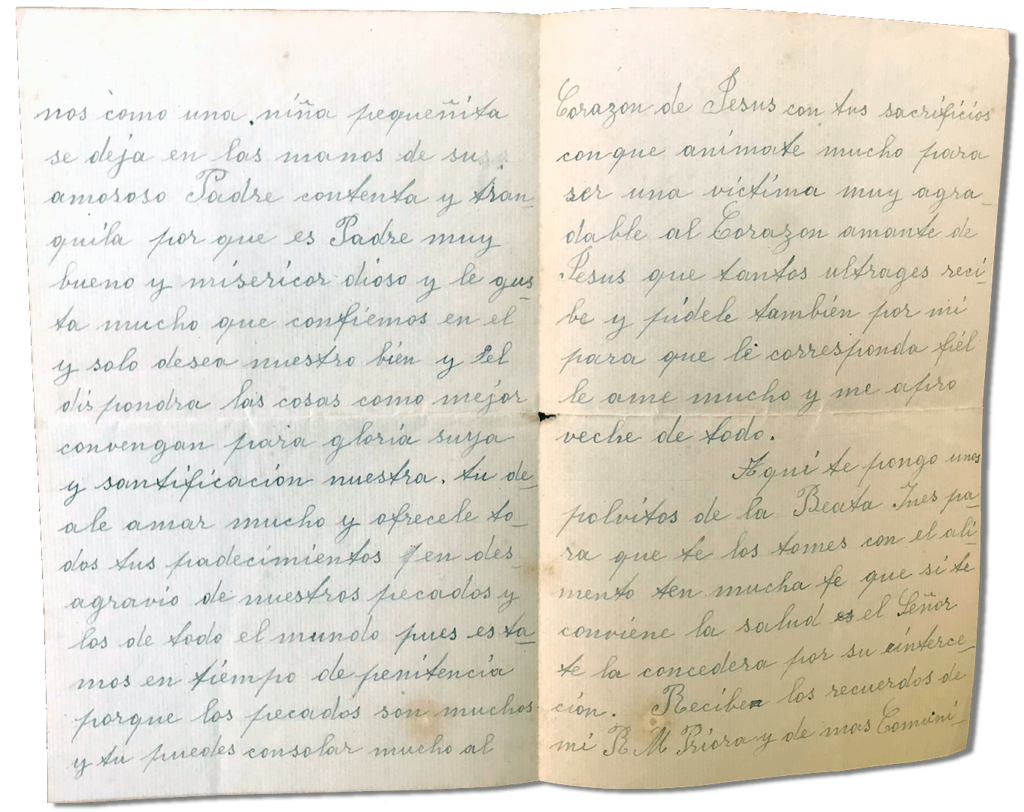 nos como una niña pequeñita
se deja en las manos de su
amoroso Padre contenta y tran_
quila por que es Padre muy
bueno y misericor dioso y le gus_
ta mucho que confiemos en el
y solo desea nuestro bien y El
dis pondra las cosas como mejor
convengan para gloria suya
y santificación nuestra. tu de_
ale amar mucho y ofrecele to_
dos tus padecimientos y en des_
agravio de nuestros pecados y
los de todo el mundo pues esta_
mos en tiempo de penitencia
porque los pecados son muchos
y tu puedes consolar mucho al
Corazon de Jesus con tus sacrificios
conque animate mucho para
ser una victima muy agra_
dable al Corazon amante de
Jesus que tantos ultrages reci_
be y pidele también por mi
para que le corresponda fiel
le ame mucho y me apro
veche de todo.
Aqui te pongo unos
polvitos de la Beata Ines pa_
ra que te los tomes con el ali_
mento ten mucha fe que si te
conviene la salud el Señor
te la concedera por su interce_
ción. Recibe los recuerdos de
mi R M Priora y de mas Comuni_